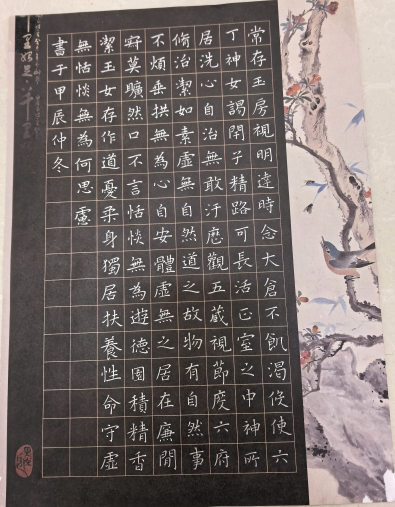 常存玉房視明達時念大倉不飢渴役使六
丁神女謁閉子精路可長活正室之中神所
居洗心自治無敢汙歷觀五藏視節度六府
脩治潔如素虛無自然道之故物有自然事
不煩垂拱無為心自安體虛無之居在廉間
寂莫曠然口不言恬惔無為遊德園積精香
潔玉女存作道憂柔身獨居扶養性命守虛
無恬惔無為何思慮
書于甲辰仲冬